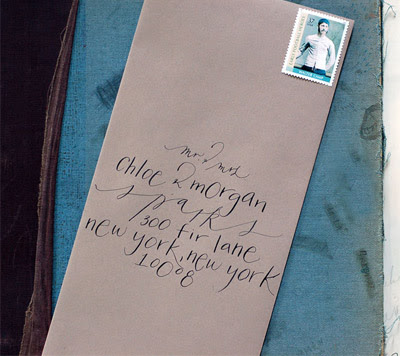 mr. & mrs
chloe & morgan
sparks
300 fir lane
new york, new york
10008